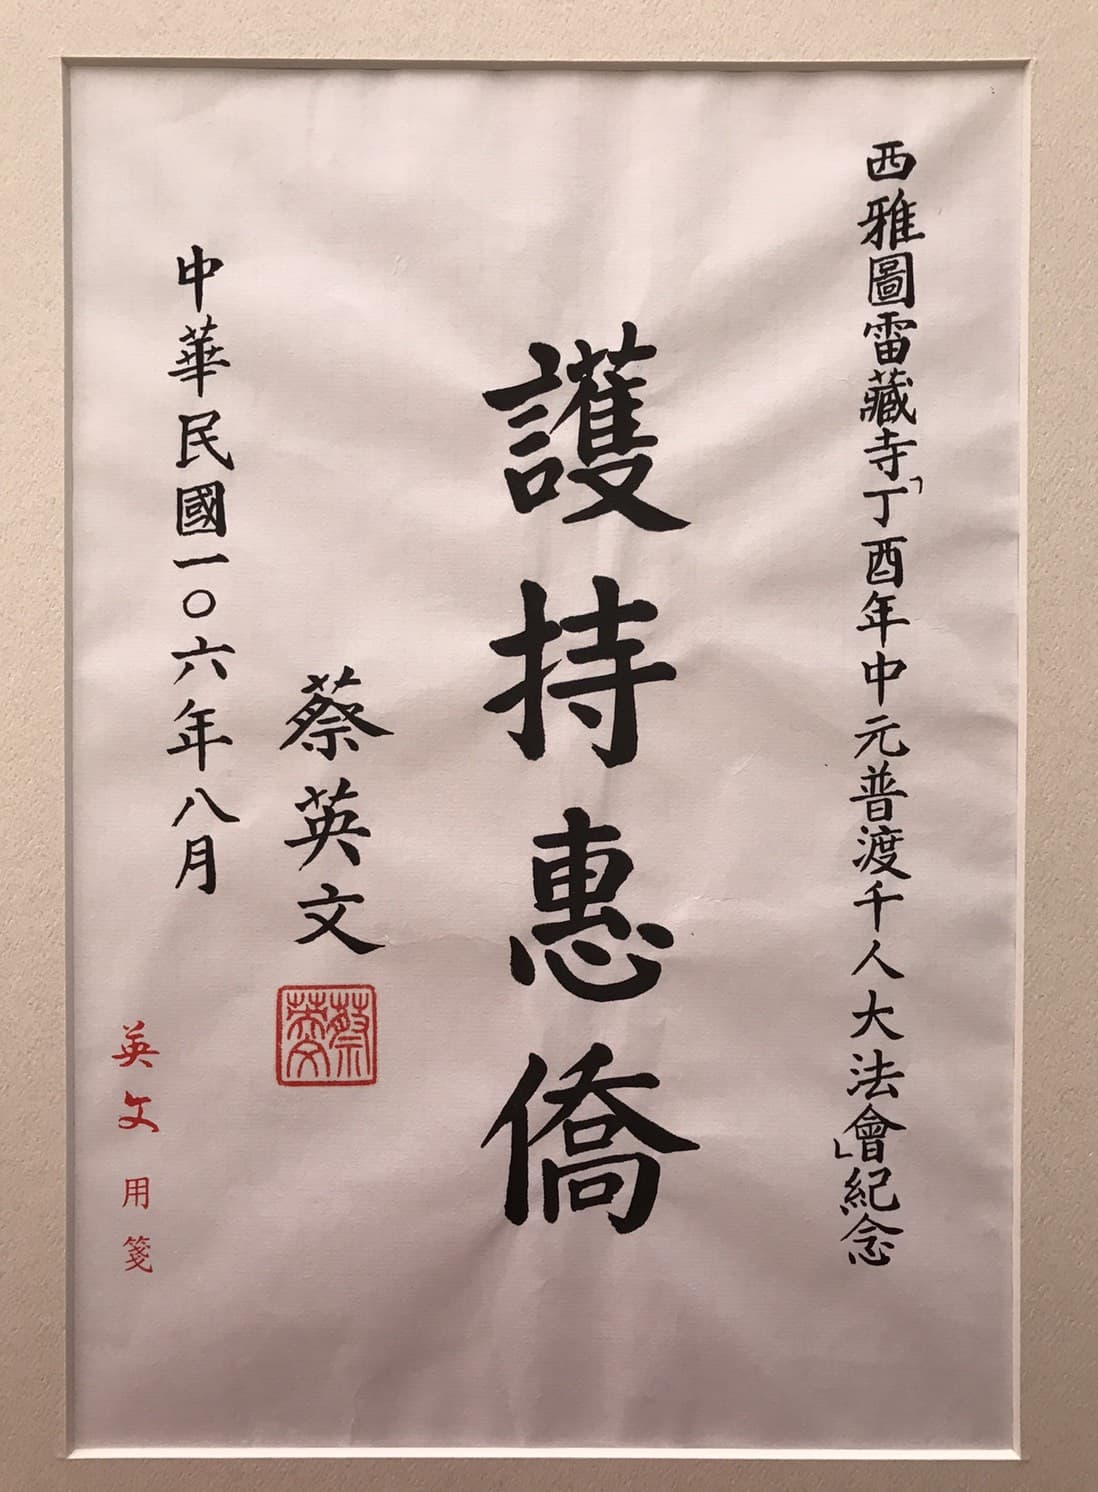 西雅圖雷藏寺「丁酉年中元普渡千人大法會」紀念
護持惠僑
蔡英文
蔡英文
中華民國一〇六年八月
英文用箋